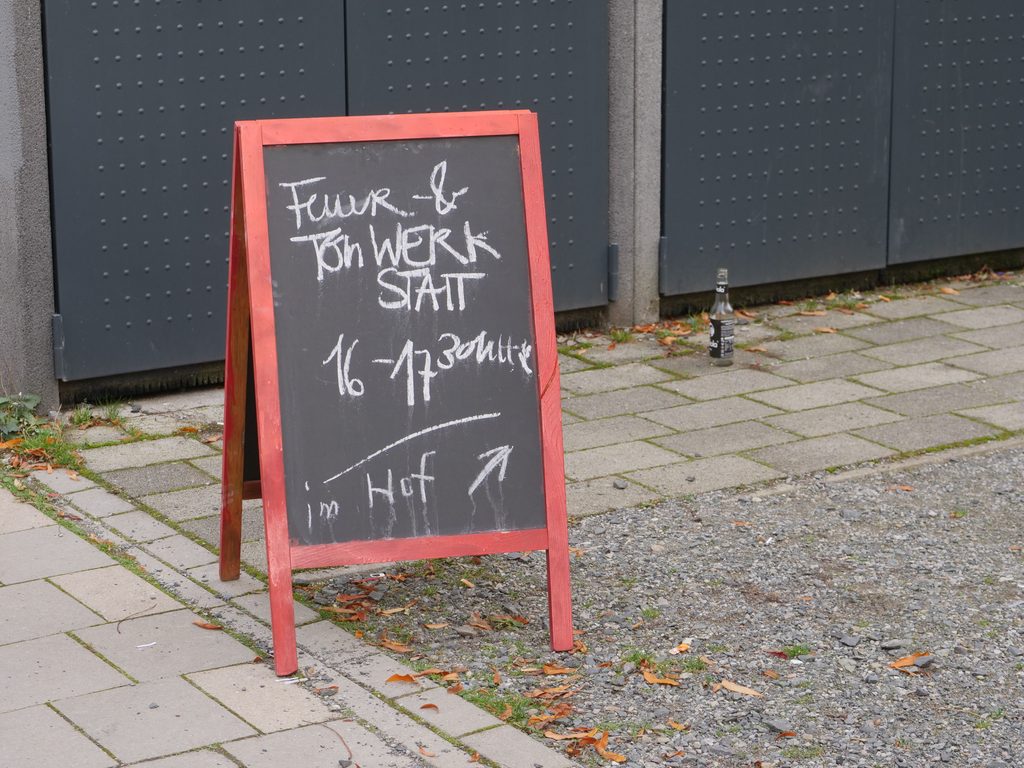 Feuer -&
Ton WERK
STATT
16 - 17 30 Uhr
im Hof